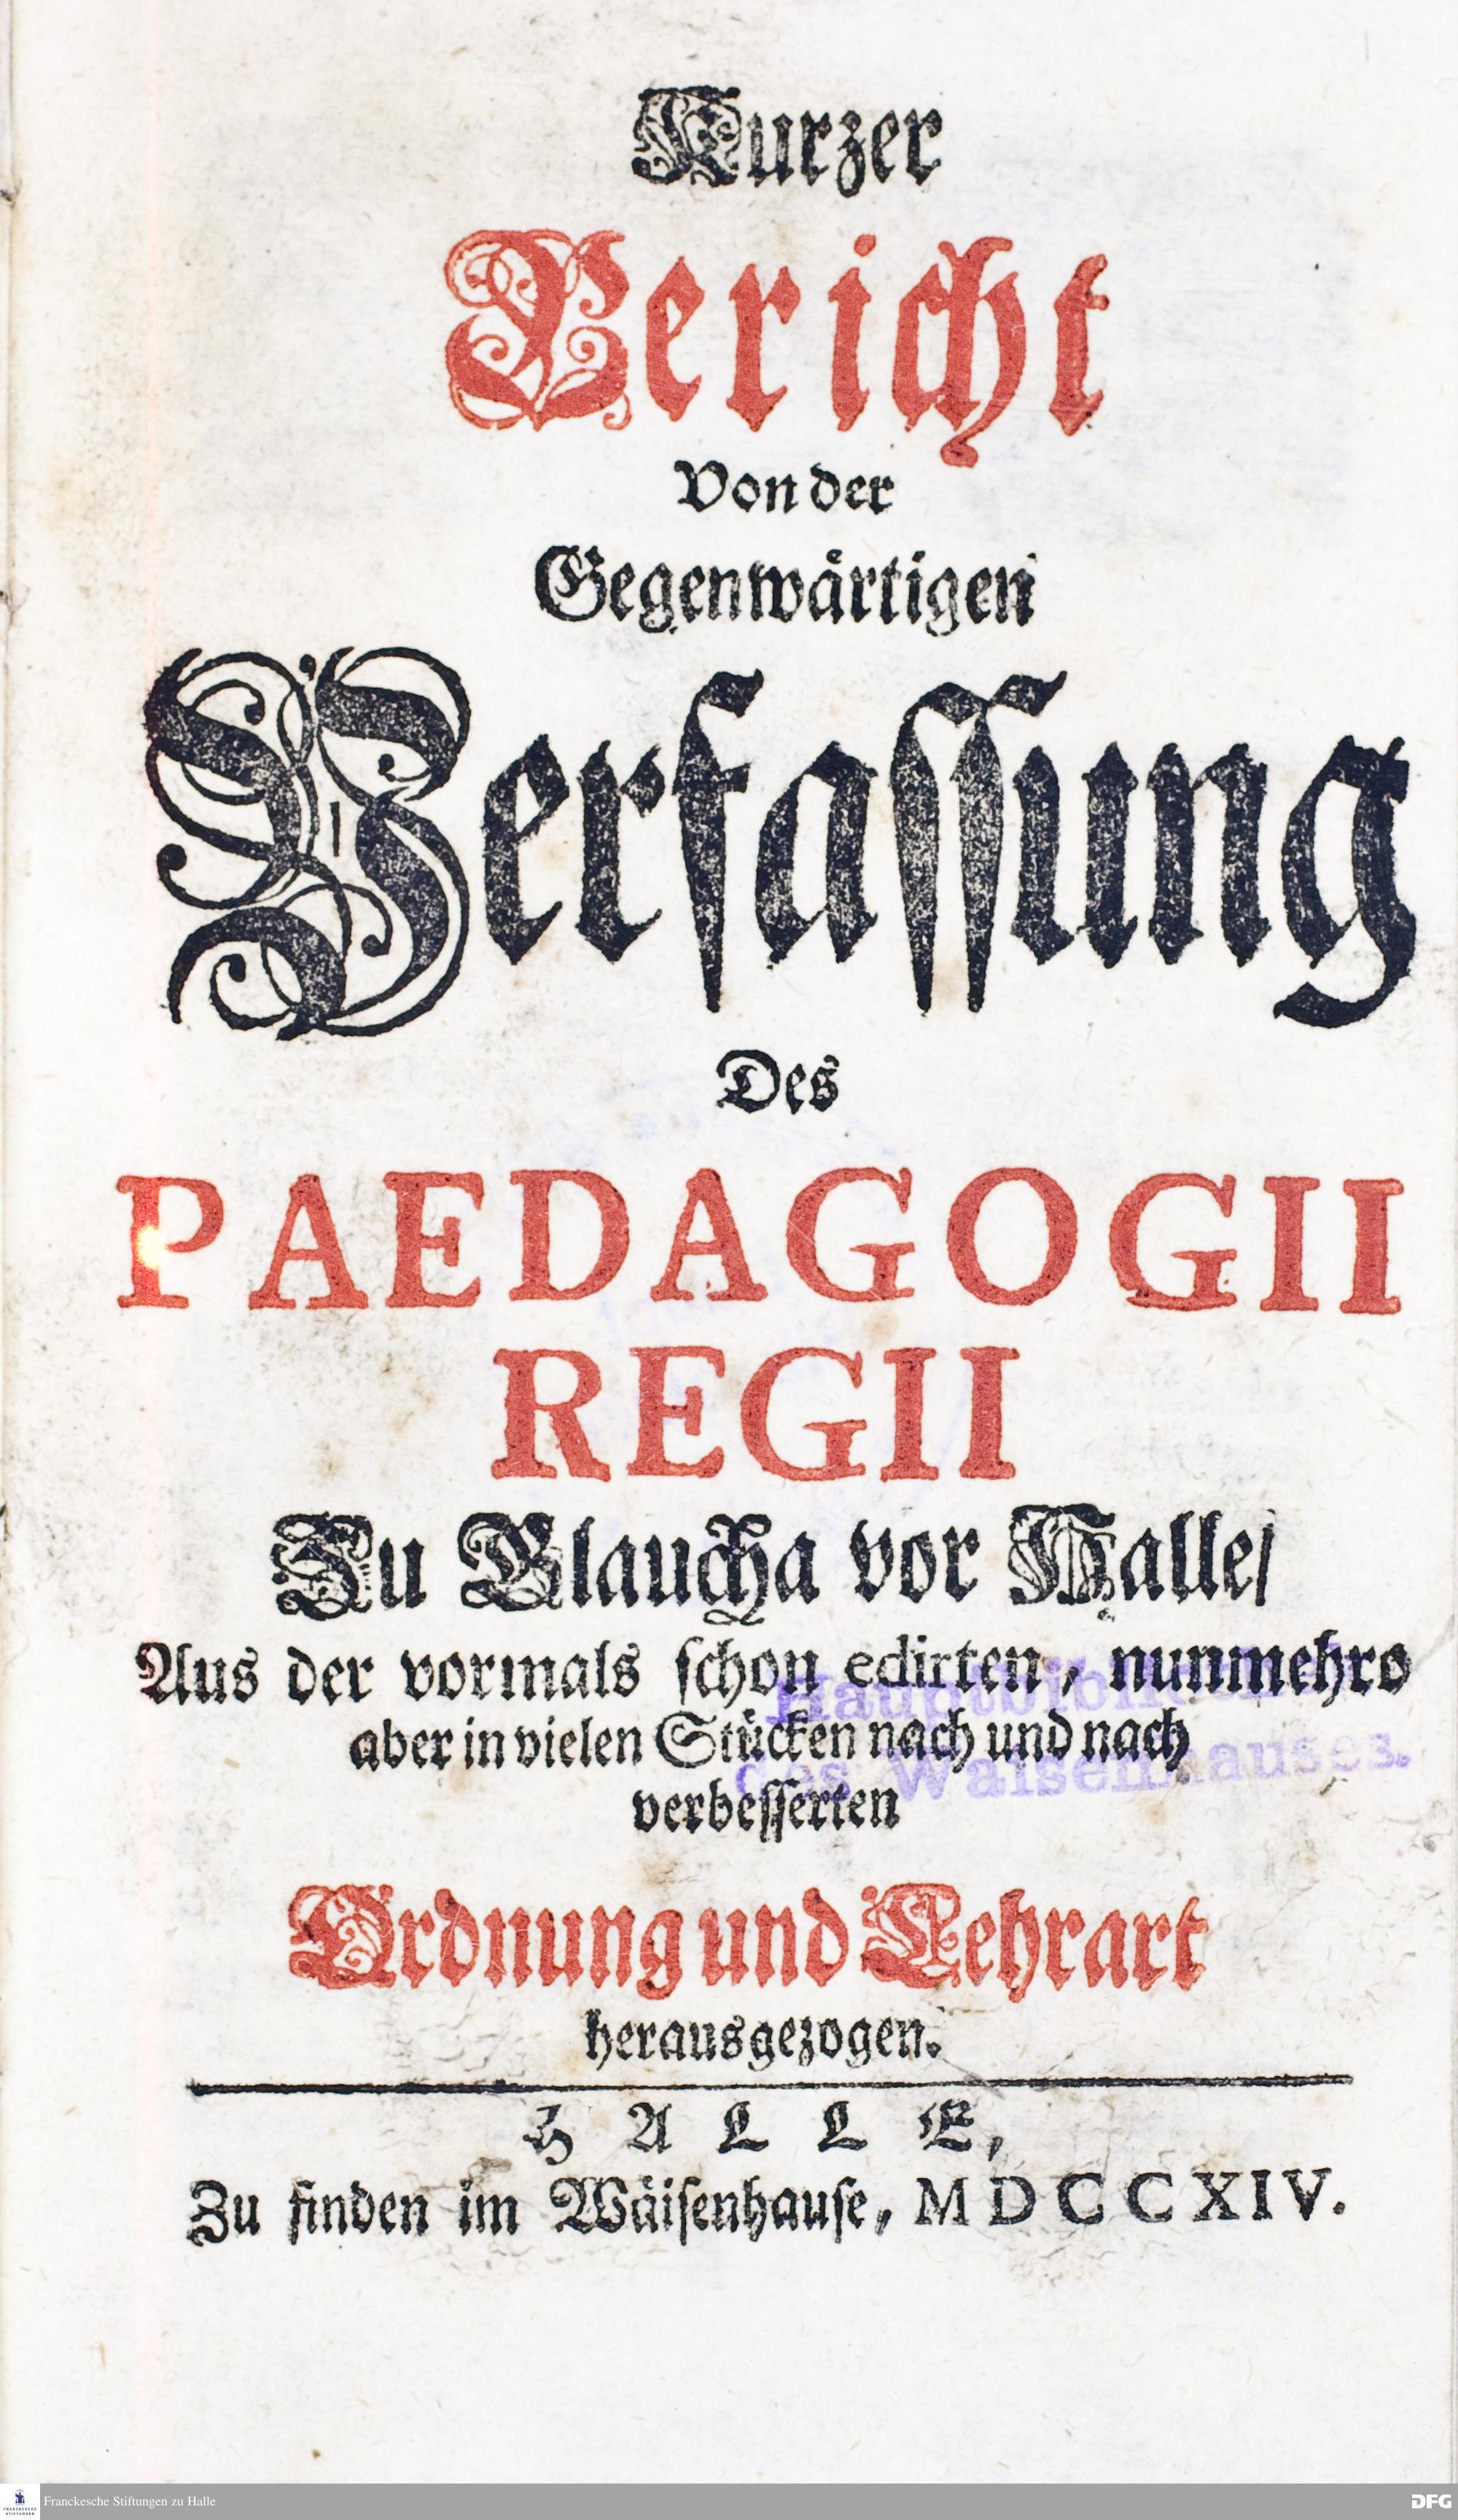 Kurzer
Bericht
Von der
Gegenwårtigen
Verfassung
Des
PAEDAGOGII
REGII
Zu Glaucha vor Halle/
Aus der vormals schon edirten, nunmehro
aber in vielen Stücken nach und nach
verbesserten
Ordnung und Lehrart
herausgezogen.
HALLE,
Zu finden im Wäisenhause, MDCCXIV.
Hauptbibliothek
des Waisenhauses.
Franckesche Stiftungen zu Halle
FRANCKESCHE
STIFTUNGEN
DFG